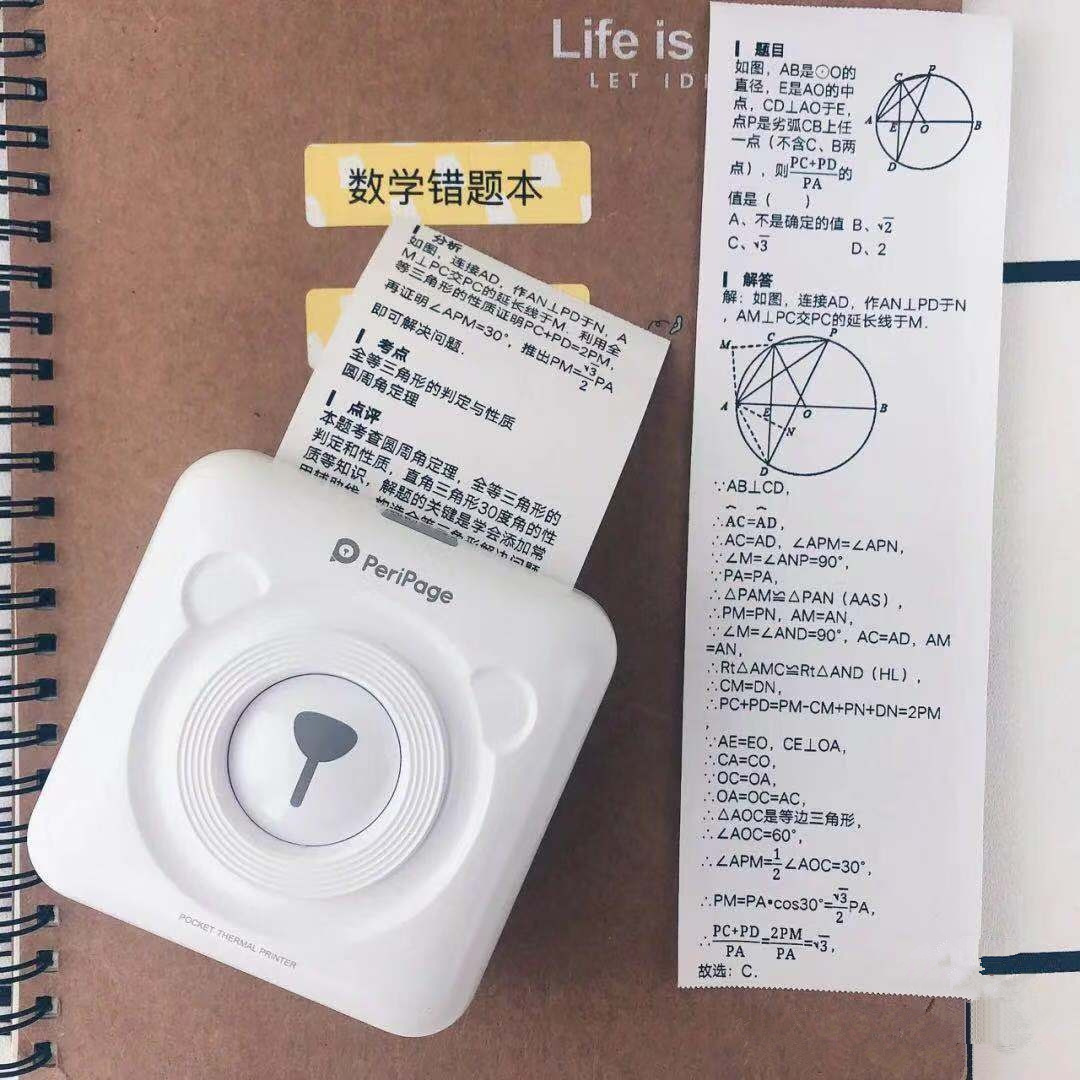 Life is
LET ID
数学错题本
题目
如图，AB是⊙O的
直径，E是AO的中
点，CD⊥AO于E，
点P是劣弧CB上任
一点（不含C、B两
点），则PC+PD/PA的
值是（ ）
A、不是确定的值 B、√2
C、√3 D、2
C P
A E O B
D
解答
解：如图，连接AD，作AN⊥PD于N
，AM⊥PC交PC的延长线于M．
M C P
A E O B
N
D
∵AB⊥CD，
∴AC=AD，
∴AC=AD，∠APM=∠APN，
∵∠M=∠ANP=90°，
∵PA=PA，
∴△PAM≌△PAN（AAS），
∴PM=PN，AM=AN，
∵∠M=∠AND=90°，AC=AD，AM
=AN，
∴Rt△AMC≌Rt△AND（HL），
∴CM=DN，
∴PC+PD=PM-CM+PN+DN=2PM
，
∵AE=EO，CE⊥OA，
∴CA=CO，
∵OC=OA，
∴OA=OC=AC，
∴△AOC是等边三角形，
∴∠AOC=60°，
∴∠APM=1/2∠AOC=30°，
∴PM=PA•cos30°=√3/2PA，
∴PC+PD/PA=2PM/PA=√3，
故选：C．
分析
如图，连接AD，作AN⊥PD于N，A
M⊥PC交PC的延长线于M．利用全
等三角形的性质证明PC+PD=2PM，
再证明∠APM=30°，推出PM=√3/2PA
即可解决问题．
考点
全等三角形的判定与性质
圆周角定理
点评
本题考查圆周角定理，全等三角形的
判定和性质，直角三角形30度角的性
质等知识，解题的关键是学会添加常
PeriPage
POCKET THERMAL PRINTER